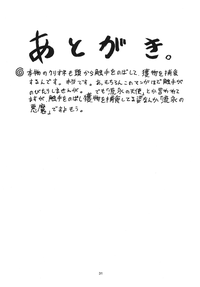 あとがき。
◎本物のクリオネも頭から触手をのばして、獲物を捕食
するんです。本当です。あ、もちろんこのマンガほど触手が
のびたりしませんが。でも「流氷の天使」とか言われて
ますが、触手をのばし獲物を捕食してる姿なんか「流氷の
悪魔」ですよもう。